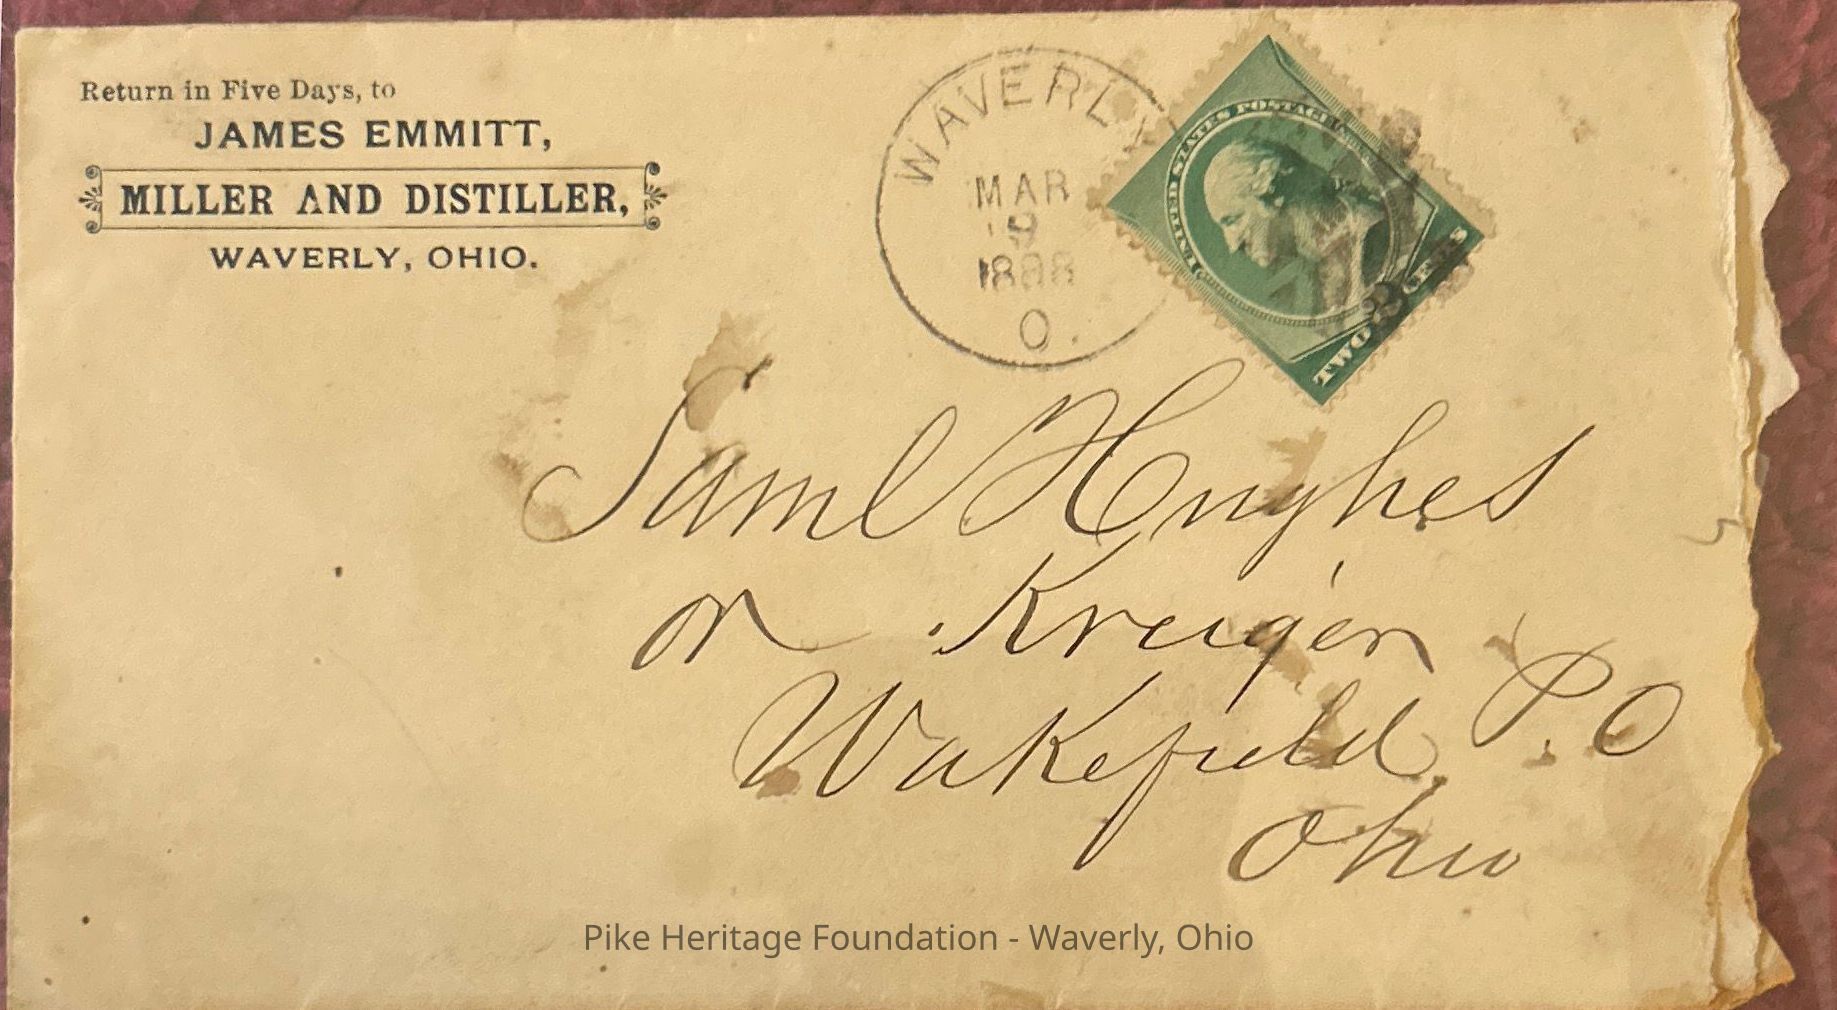 Return in Five Days, to
JAMES EMMITT,
MILLER AND DISTILLER,
WAVERLY, OHIO.
WAVERLY
MAR
9
1888
O.
UNITED STATES POSTAGE
TWO 2 CENTS
Saml Hughes
or Kreiger
Wakefield P.O
Ohio
Pike Heritage Foundation - Waverly, Ohio